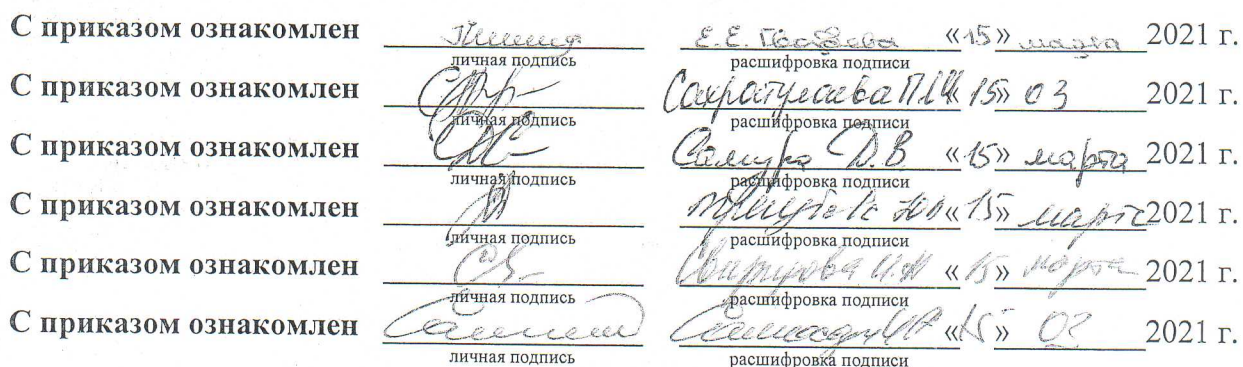 С приказом ознакомлен Е.Е. «15» марта 2021 г.
личная подпись расшифровка подписи
С приказом ознакомлен «15» 03 2021 г.
личная подпись расшифровка подписи
С приказом ознакомлен Д.В «15» марта 2021 г.
личная подпись расшифровка подписи
С приказом ознакомлен «15» марта 2021 г.
личная подпись расшифровка подписи
С приказом ознакомлен «15» марта 2021 г.
личная подпись расшифровка подписи
С приказом ознакомлен «15» 03 2021 г.
личная подпись расшифровка подписи